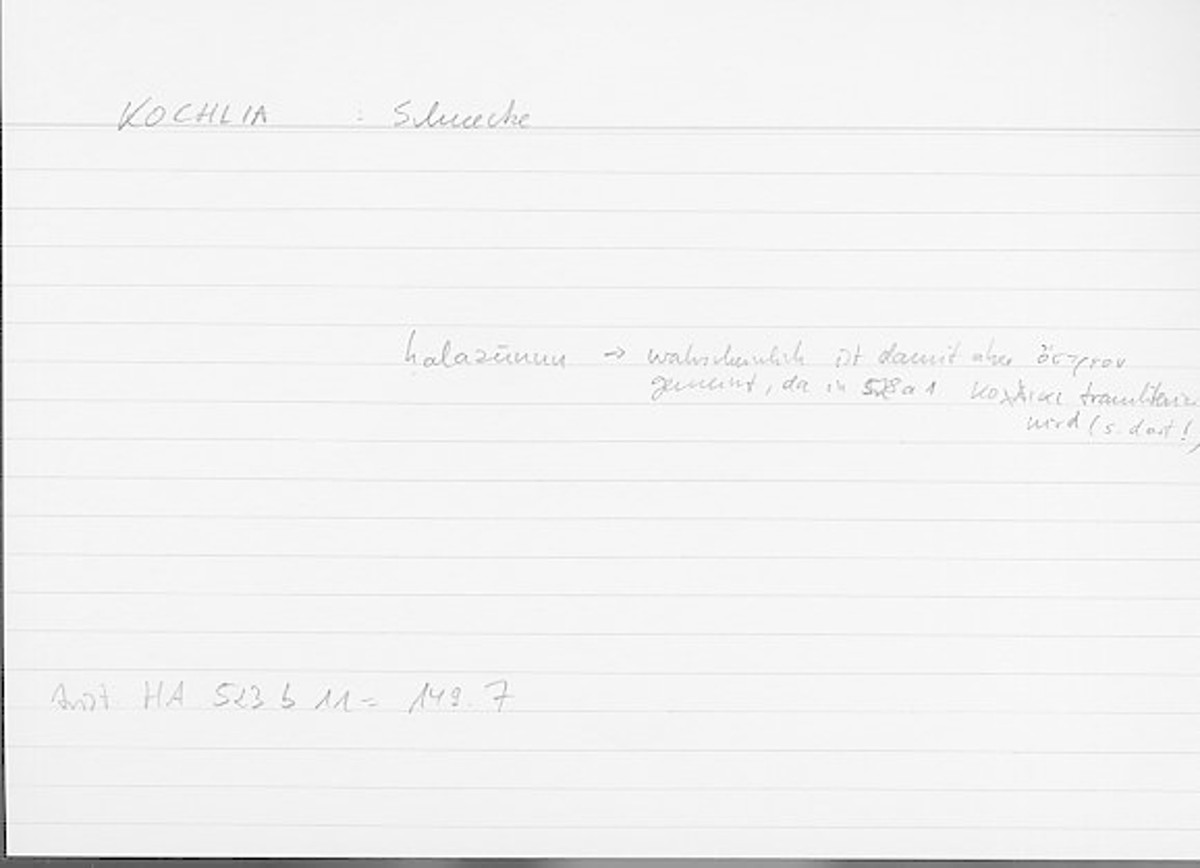 KOCHLIA : Schnecke
halazūnun → wahrscheinlich ist damit aber ὄστρεον
gemeint, da in 528 a 1 κοχλίαι
wird (s. dort!)
Arist HA 523 b 11 = 149.7